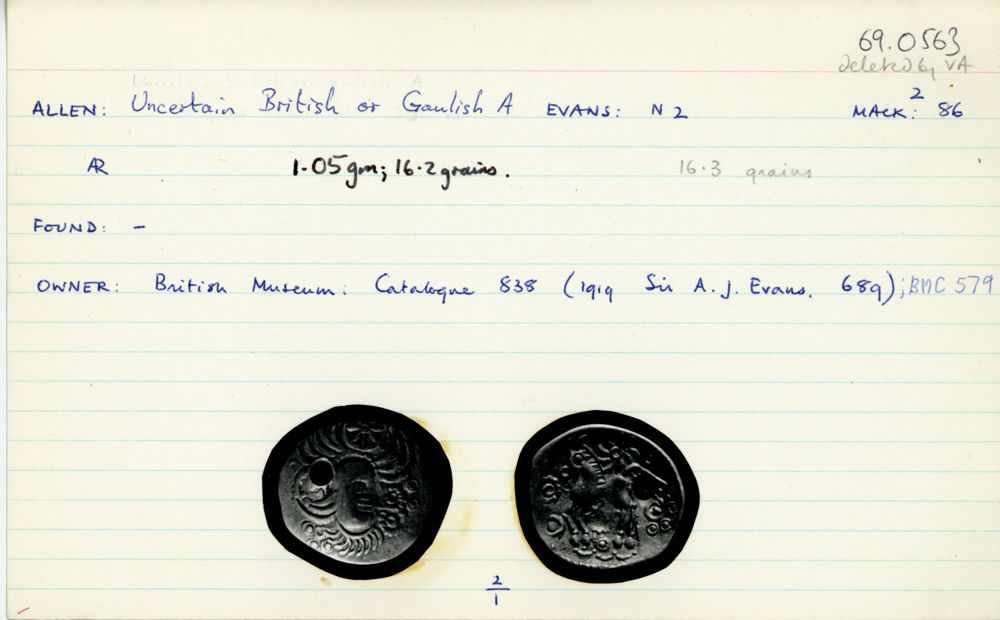 69.0563
deleted by VA
ALLEN: Uncertain British or Gaulish A EVANS: N 2 MACK²: 86
AR 1.05 gm; 16.2 grains. 16.3 grains
FOUND: -
OWNER: British Museum: Catalogue 838 (1919 Sir A.J. Evans. 689); BMC 579
2
1